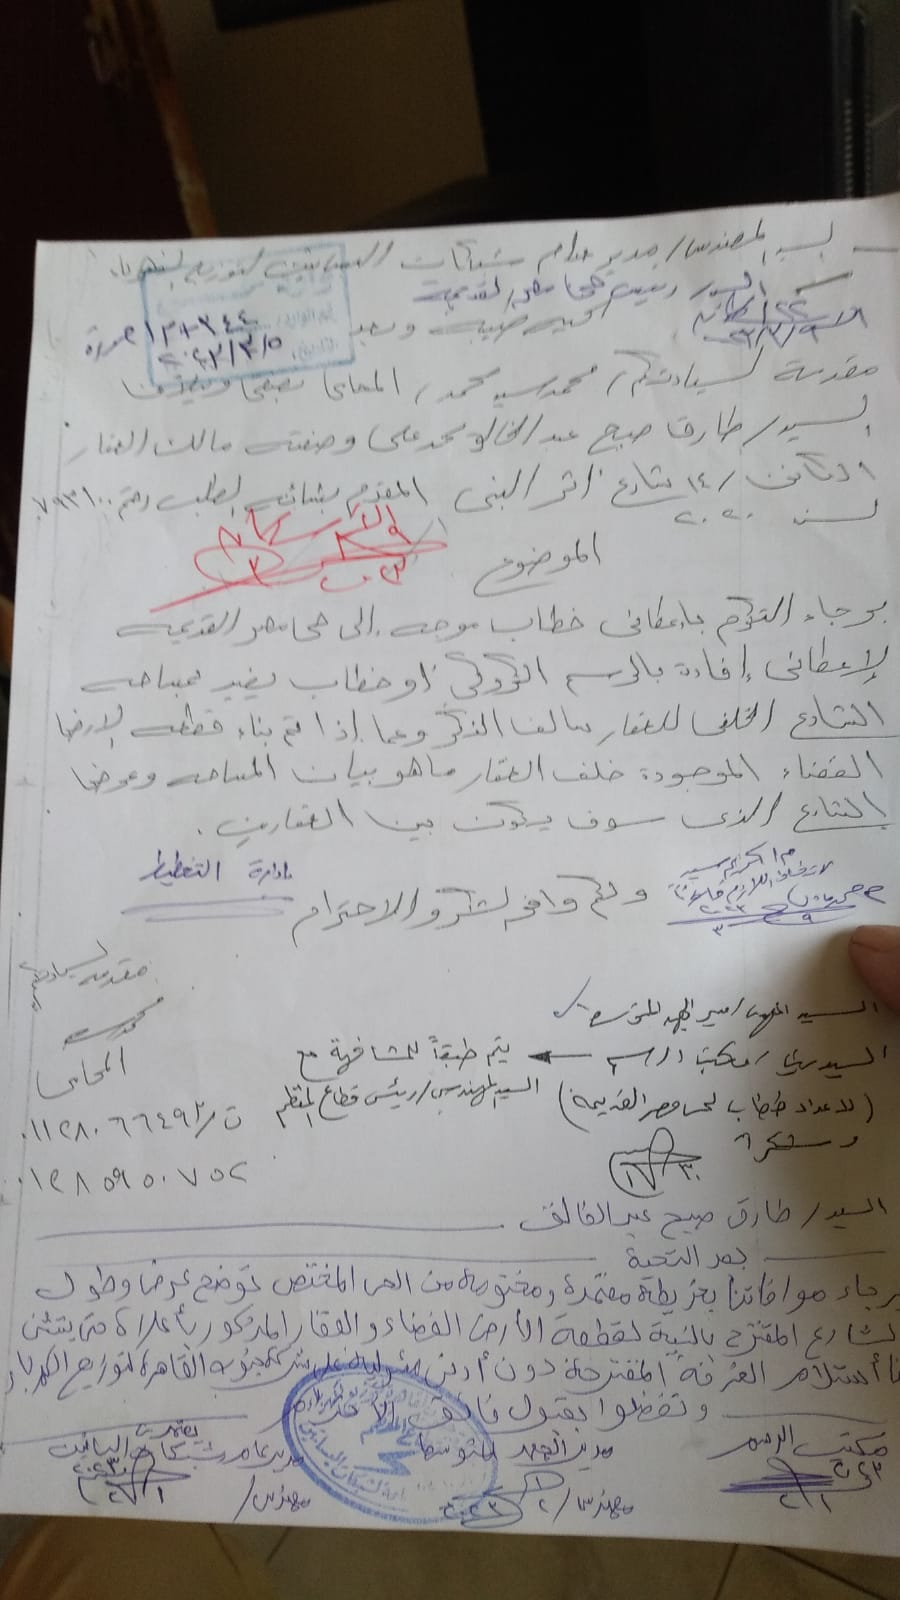 السيد المهندس / مدير عام شبكات البساتين لتوزيع الكهرباء
السيد / رئيس حي مصر القديمة
تحية طيبة وبعد
١٢٠٣٤٤
٢٠٢٣/٣/٥
مقدمه لسيادتكم / محمد سيد محمد / المحامى بصفتى وكيلاً
السيد / طارق صبح عبد الخالق محمد على وصفته مالك العقار
الكائن / ١٤ شارع أثر النبى المقدم بشأنه الطلب رقم ٧٩٣١٠٠
لسنه ٢٠٢٠
الموضوع
برجاء التكرم بإعطائى خطاب موجه إلى حى مصر القديمه
لإعطائى إفادة بالرسم الكروكى أو خطاب يفيد بمساحه
الشارع الخلفى للعقار سالف الذكر وعما إذا تم بناء قطعه الارض
الفضاء الموجودة خلف العقار ما هو بيان المساحه وعرض
الشارع الذى سوف يكون بين العقارين .
إدارة التخطيط
ولكم وافر الشكر والاحترام
مقدمه لسيادتكم
محمد سيد
المحامى
ت / ٠١١٢٨٠٦٦٤٩٣
٠١٢٨٥٩٥٠٧٥٢
السيد المهندس / مدير الجهد المتوسط
السيد / مكتب الرسم ← يتم طبقاً للمشافهة مع
السيد المهندس / رئيس قطاع المقطم
(لاعداد خطاب لحى مصر القديمة)
وشكراً
السيد / طارق صبح عبد الخالق
بعد التحية
برجاء موافاتنا بخريطة معتمدة ومختومة من الحى المختص توضح عرض وطول
الشارع المقترح بالنسبة لقطعة الأرض الفضاء والعقار المذكور بأعلاه حتى يتثنى
لنا أستلام الغرفة المقترحة دون أدنى مسئولية على شركة جنوب القاهرة لتوزيع الكهرباء
وتفضلوا بقبول فائق الأحترام
مكتب الرسم
مدير الجهد المتوسط
مدير عام شبكات البساتين
مهندس /
مهندس /